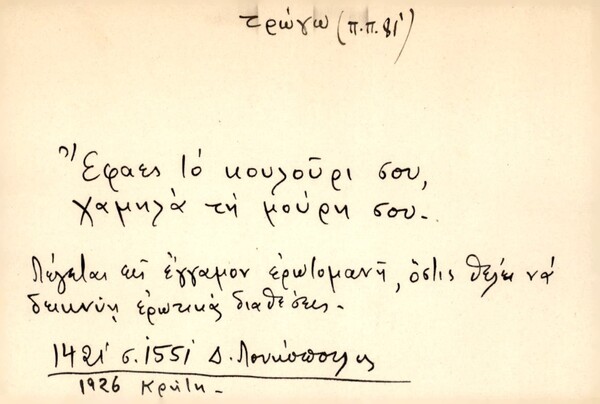 τρώγω (π.π. 81)
Ἔφαες τό κουλοῦρι σου,
χαμηλὰ τή μούρη σου.
Λέγεται ἐπί ἔγγαμον ἐρωτομανῆ, ὅστις θέλει νά
δεικνύῃ ἐρωτικάς διαθέσεις.
1421 σ. 155 Δ. Λουκόπουλος
1926 Κρήτη.